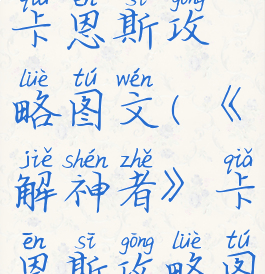 qiǎ ēn sī gōng
卡恩斯攻
lüè tú wén
略图文(《
jiě shén zhě qiǎ
解神者》卡
ēn sī gōng lüè tú
恩斯攻略图